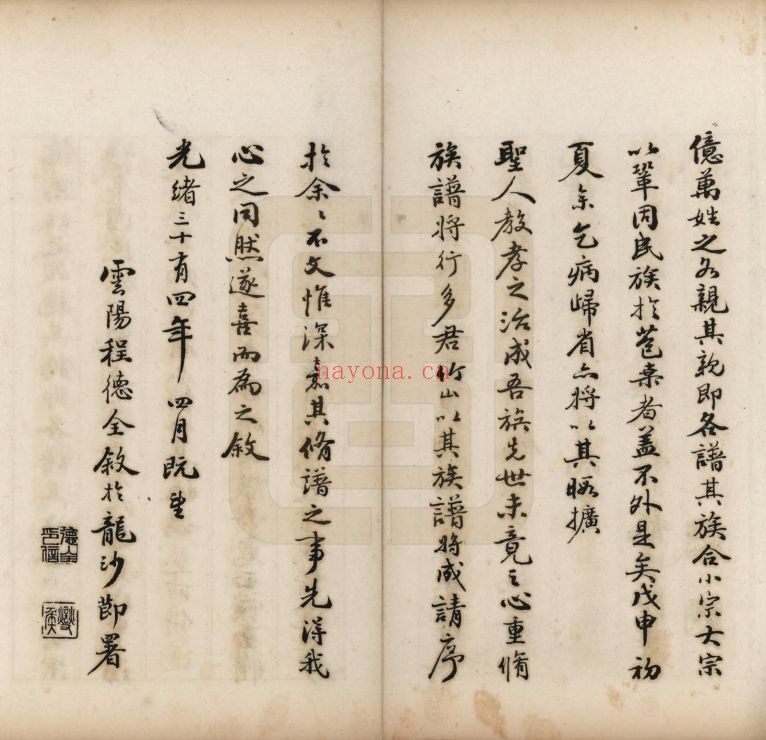 億萬姓之各親其親即各譜其族合小宗大宗
以鞏固民族於苞桑者蓋不外是矣戊申初
夏余乞病歸省亦將以其暇擴
聖人教孝之治成吾族先世未竟之心重脩
族譜將行多君竹山以其族譜將成請序
於余〻不文惟深嘉其脩譜之事先得我
心之同然遂喜而為之敘
光緒三十有四年四月既望
雲陽程德全敘於龍沙節署
德全
印信
nayona.cn